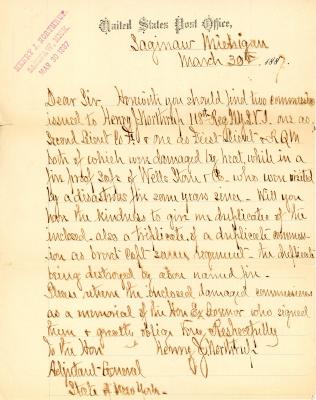 HENRY J. NORTHRUP,
SAGINAW, MICH.
MAR 30 1887
United States Post Office,
Saginaw Michigan
March 30th 1887.
Dear Sir, Herewith you should find two commissions
issued to Henry J Northrup, 118th Reg N.Y.S.V.I. one as
Second Lieut Co A. & one as First Lieut & R.Q.M
both of which were damaged by heat, while in a
fire proof safe of Wells Stone & Co. who were visited
by a disastrous fire some years since. Will you
have the kindness to give me duplicates of the
inclosed. also a triplicate, of a duplicate commiss-
ion as brevet Capt same regiment. the duplicate
being destroyed by above named fire.
Please return the enclosed damaged commissions
as a memorial of the Hon Ex Governor who signed
them & greatly oblige Yours, Respectfully
To the Hon Henry J Northrup
Adjutant General
State of New York.